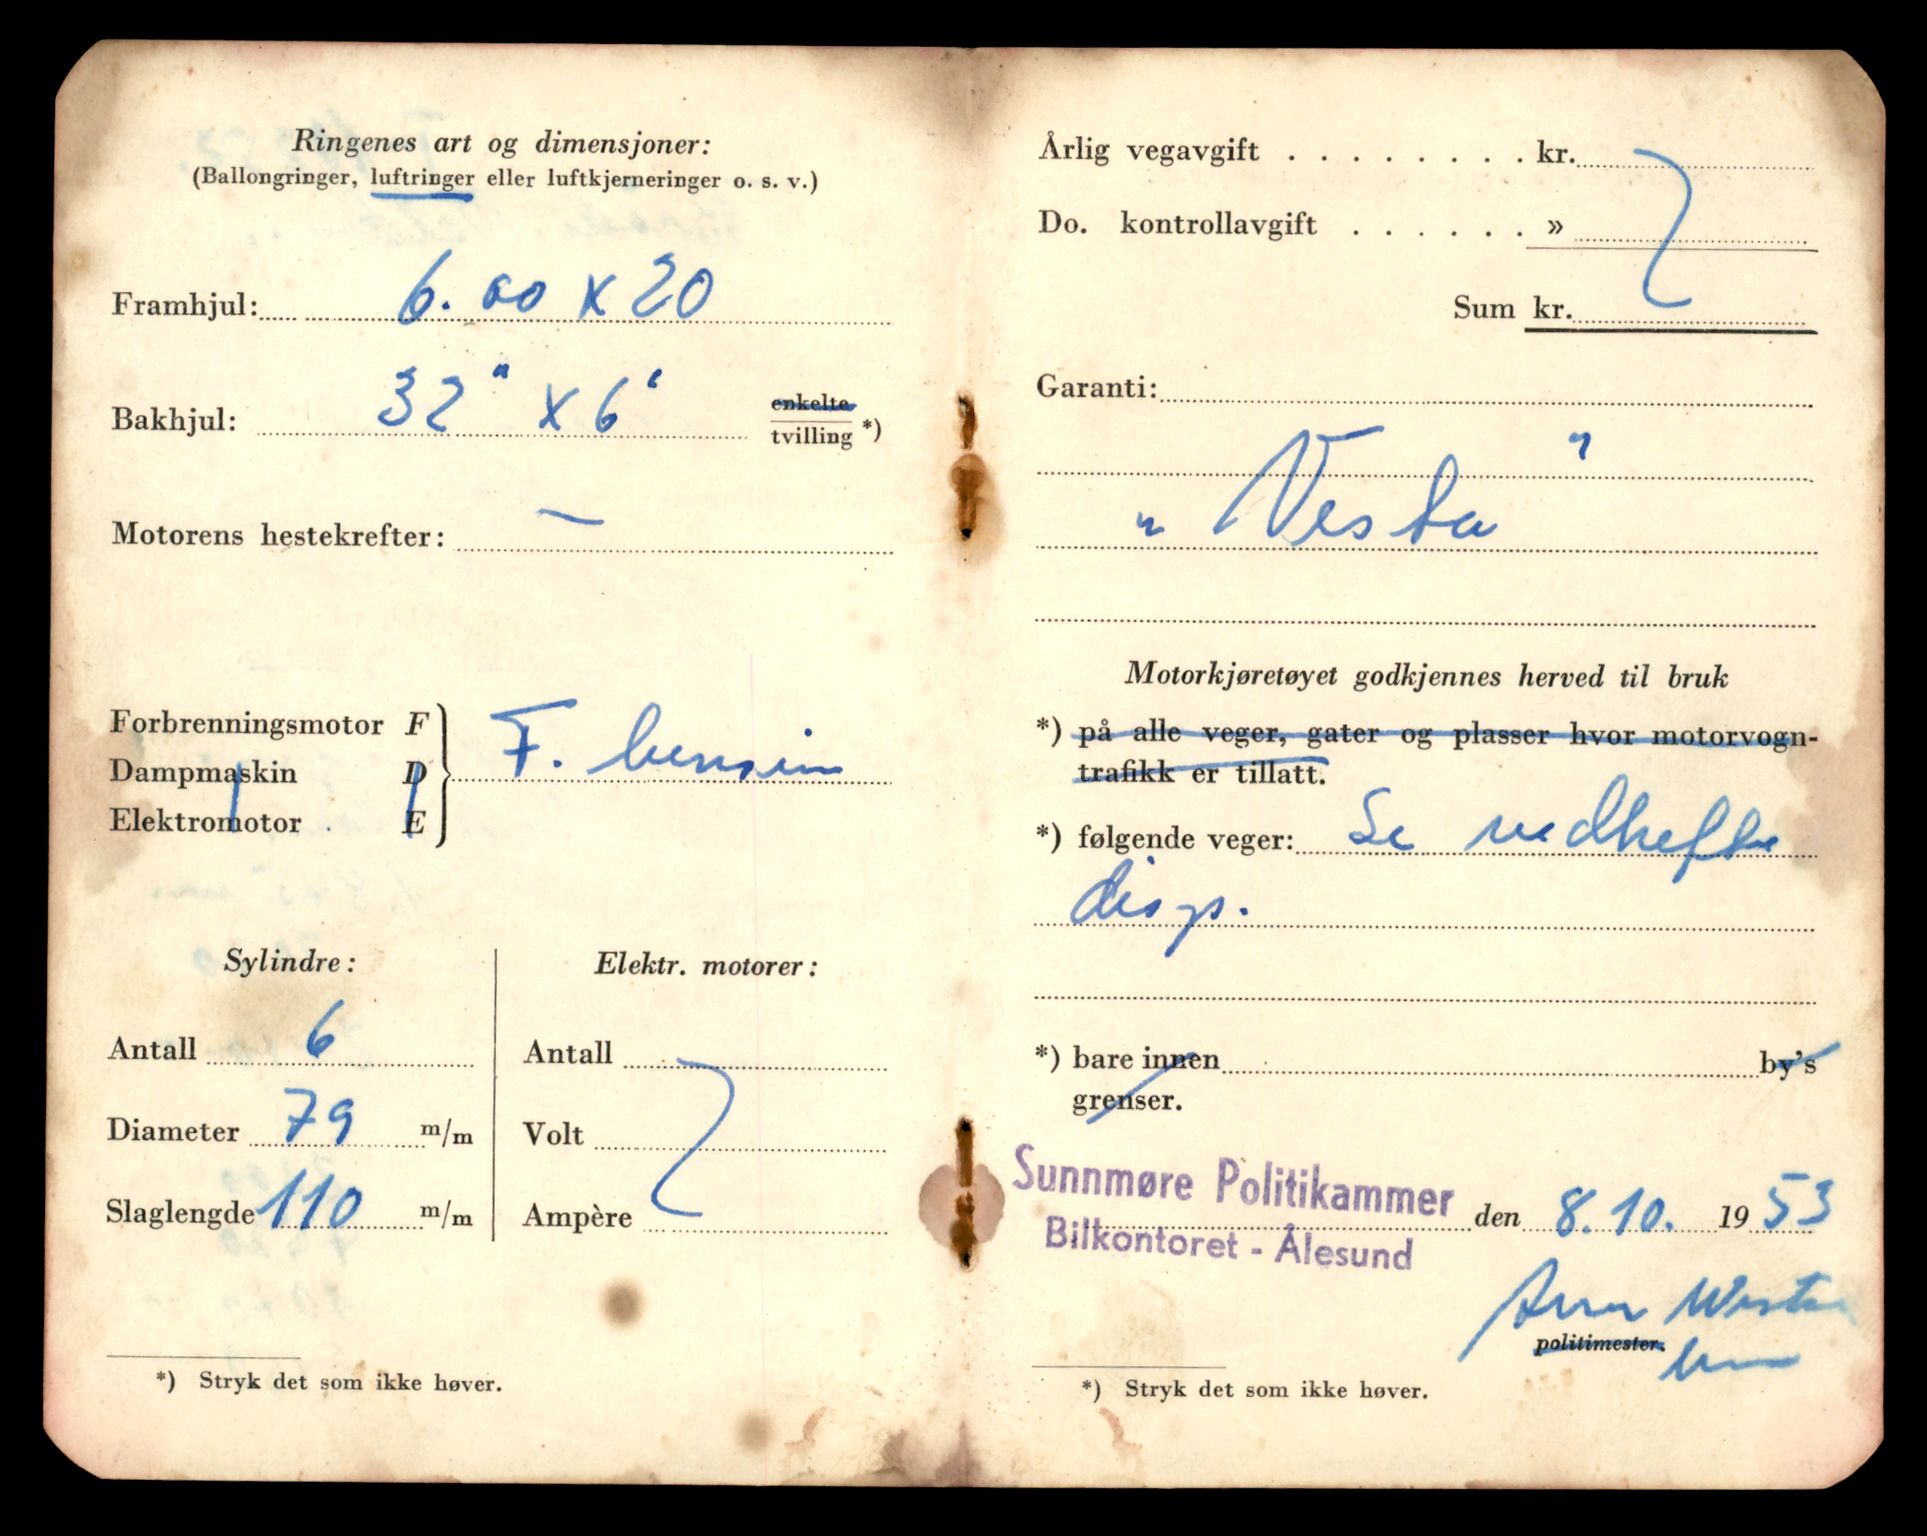 Ringenes art og dimensjoner:
(Ballongringer, luftringer eller luftkjerneringer o. s. v.)
Framhjul: 6.00 x 20
Bakhjul: 32" x 6" enkelte tvilling *)
Motorens hestekrefter: —
Forbrenningsmotor F
Dampmaskin D
Elektromotor E
F. bensin
Sylindre:
Antall 6
Diameter 79 m/m
Slaglengde 110 m/m
Elektr. motorer:
Antall
Volt
Ampère
*) Stryk det som ikke høver.
Årlig vegavgift . . . . . . . . kr.
Do. kontrollavgift . . . . . . »
Sum kr.
Garanti:
"Vesta"
Motorkjøretøyet godkjennes herved til bruk
*) på alle veger, gater og plasser hvor motorvogn-
trafikk er tillatt.
*) følgende veger: Se vedhefte
disp.
*) bare innen by's
grenser.
Sunnmøre Politikammer den 8.10. 1953
Bilkontoret - Ålesund
politimester.
*) Stryk det som ikke høver.